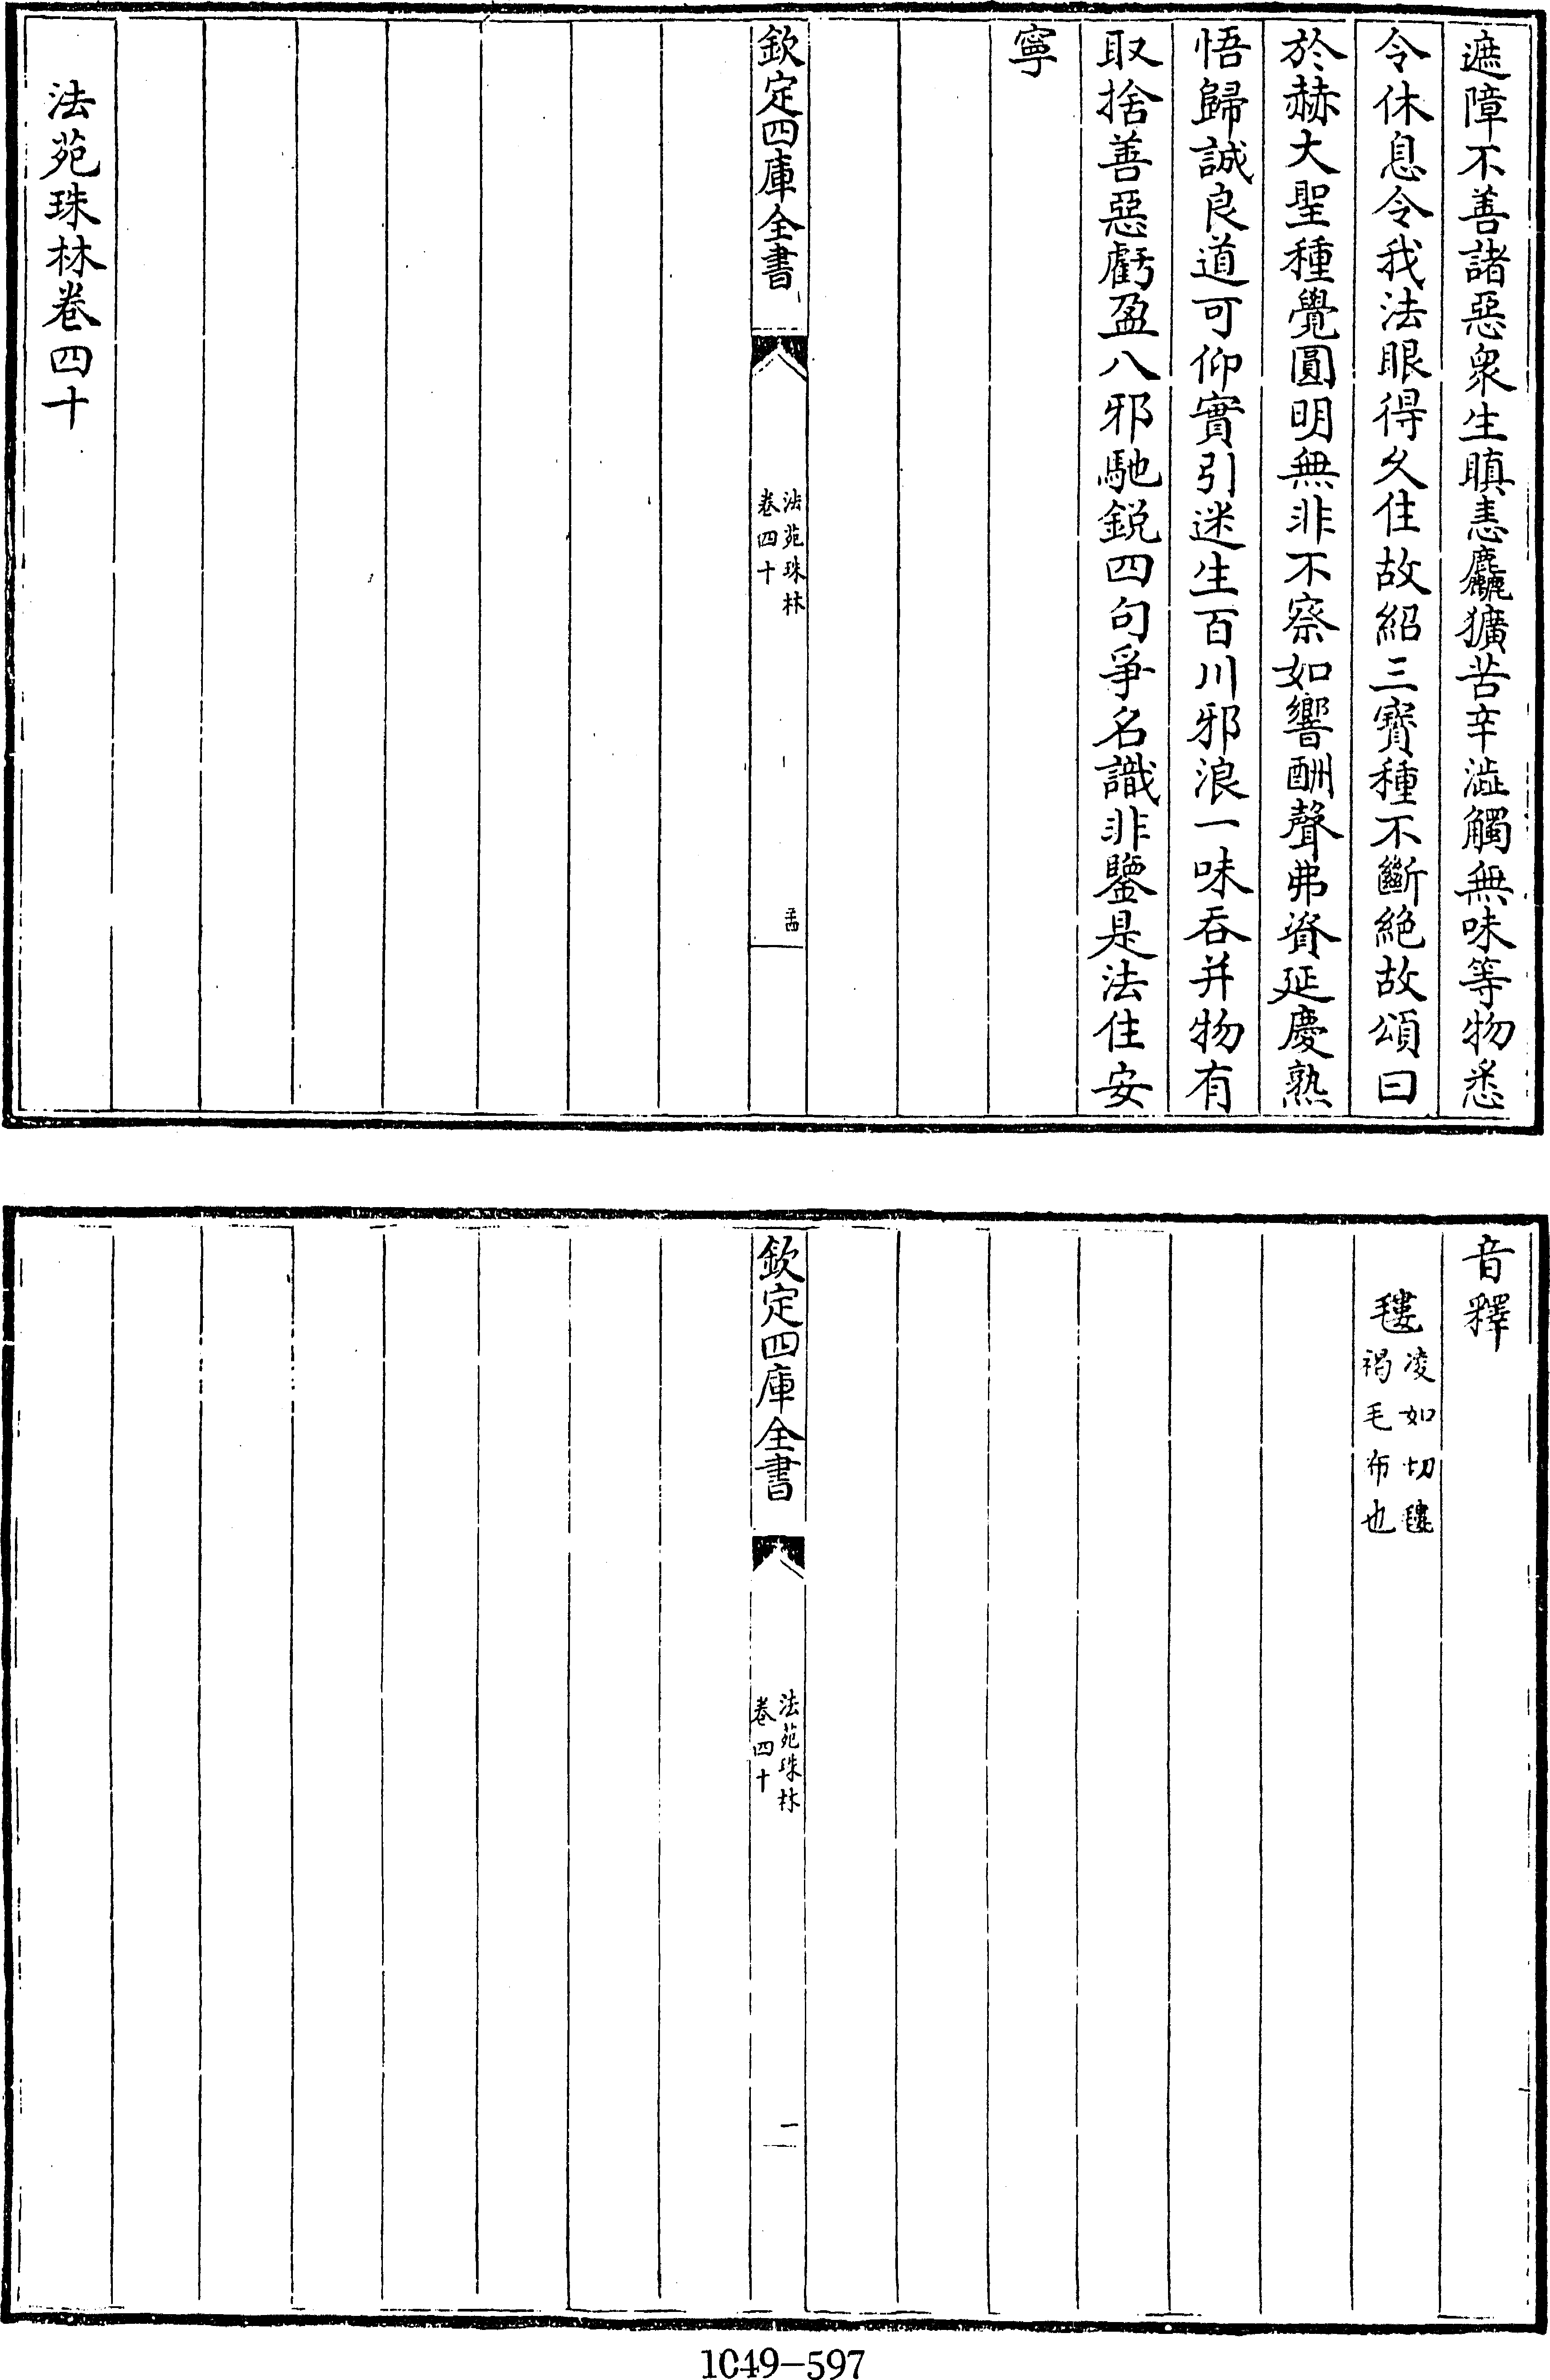 遮障不善諸惡衆生瞋恚麤獷苦辛澁觸無味等物悉
令休息令我法眼得久住故紹三寳種不斷絶故頌曰
於赫大聖種覺圓明無非不察如響酬聲弗資延慶熟
悟歸誠良道可仰實引迷生百川邪浪一味吞并物有
取捨善惡虧盈八邪馳銳四句爭名識非鑒是法住安
寧
欽定四庫全書
法苑珠林
卷四十
三十四
法苑珠林卷四十
音釋
氀凌如切氀
褐毛布也
欽定四庫全書
法苑珠林
卷四十
一
1049-597